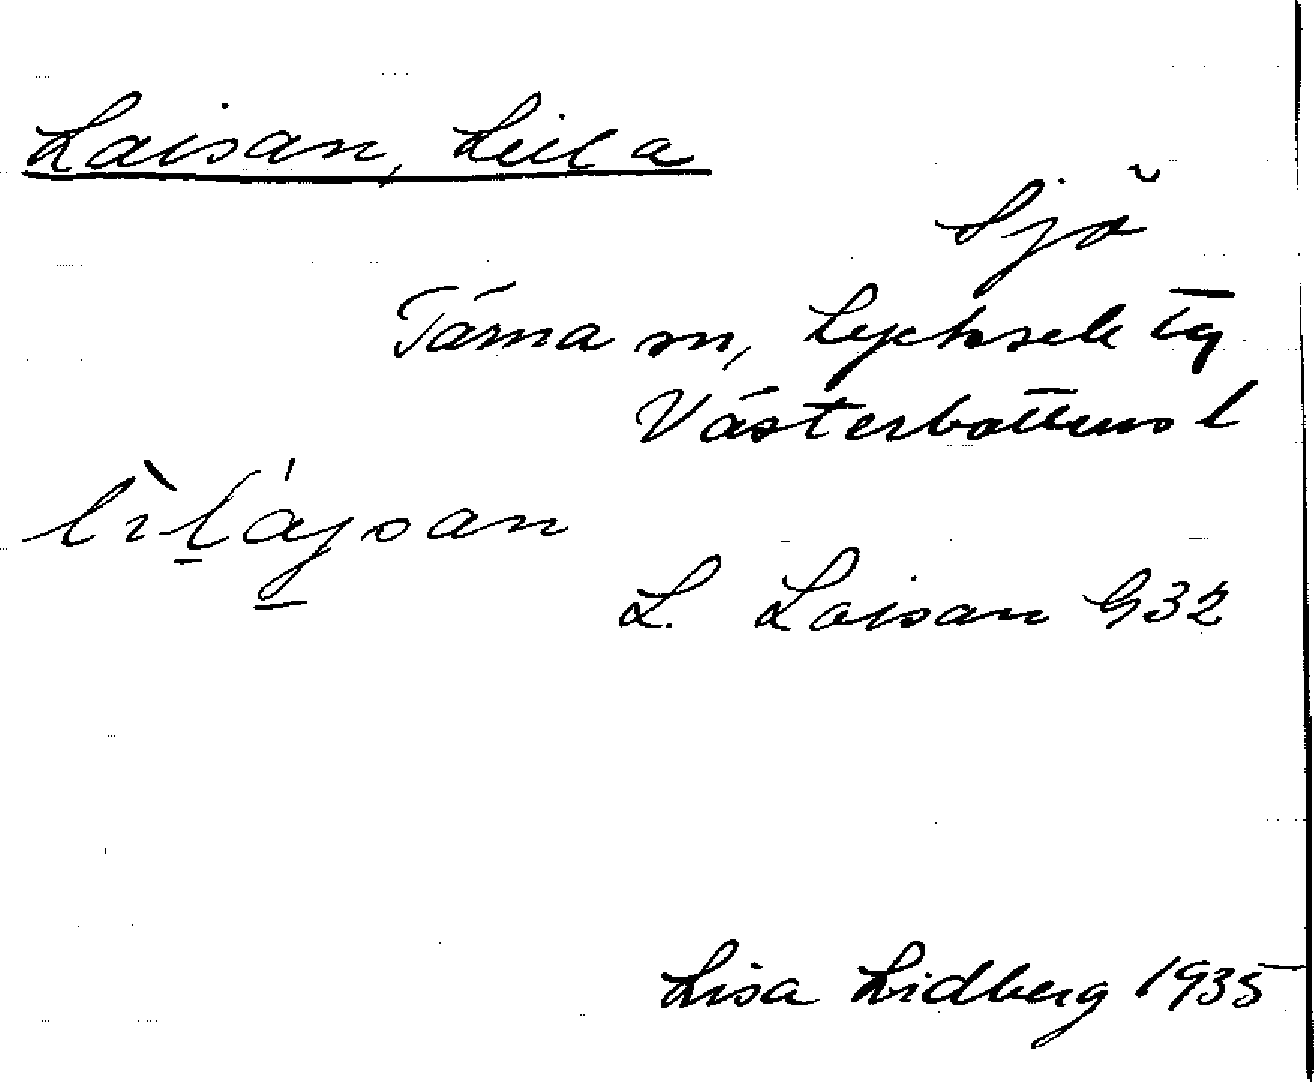 Laisan, Lill a
Sjö
Tärna sn, Lycksele tg
Västerbottens l
L. Laisan G32
Lisa Lidberg 1935